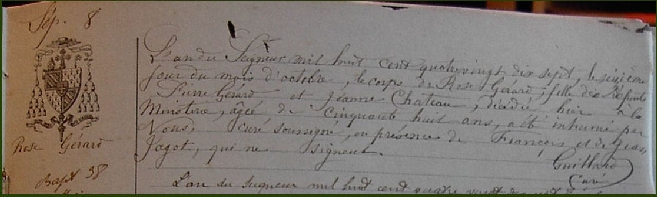 Sep. 8
L'an du Seigneur mil huit cent quatrevingt dix sept, le
jour du mois d'octobre, le corps de Rose Gérard, fille des
Pierre Gérard et Jeanne Chateau, décédée hier à la
Ministrie, agée de cinquante huit ans, a été inhumé par
Nous, curé soussigné, en présence de François et de Jean
Jagot, qui ne signent.
Rose Gérard
Guillard
Curé
Bapt 38
L'an du Seigneur mil huit cent quatre vingt dix